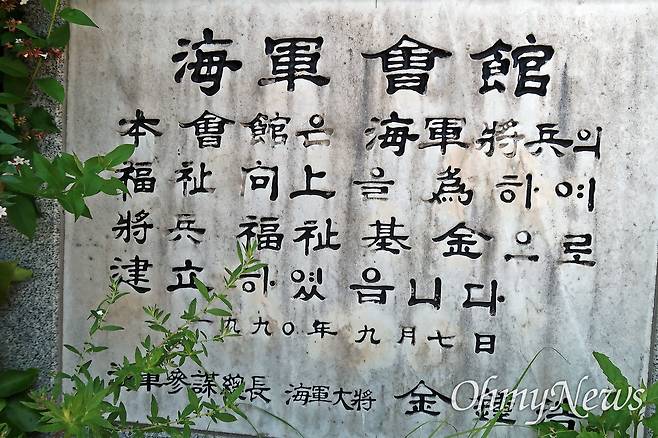 海軍會館
本會館은 海軍將兵의
福祉向上을 為하여
將兵 福祉基金으로
建立하였읍니다
一九九〇年 九月七日
海軍參謀總長 海軍大將 金
OhmyNews